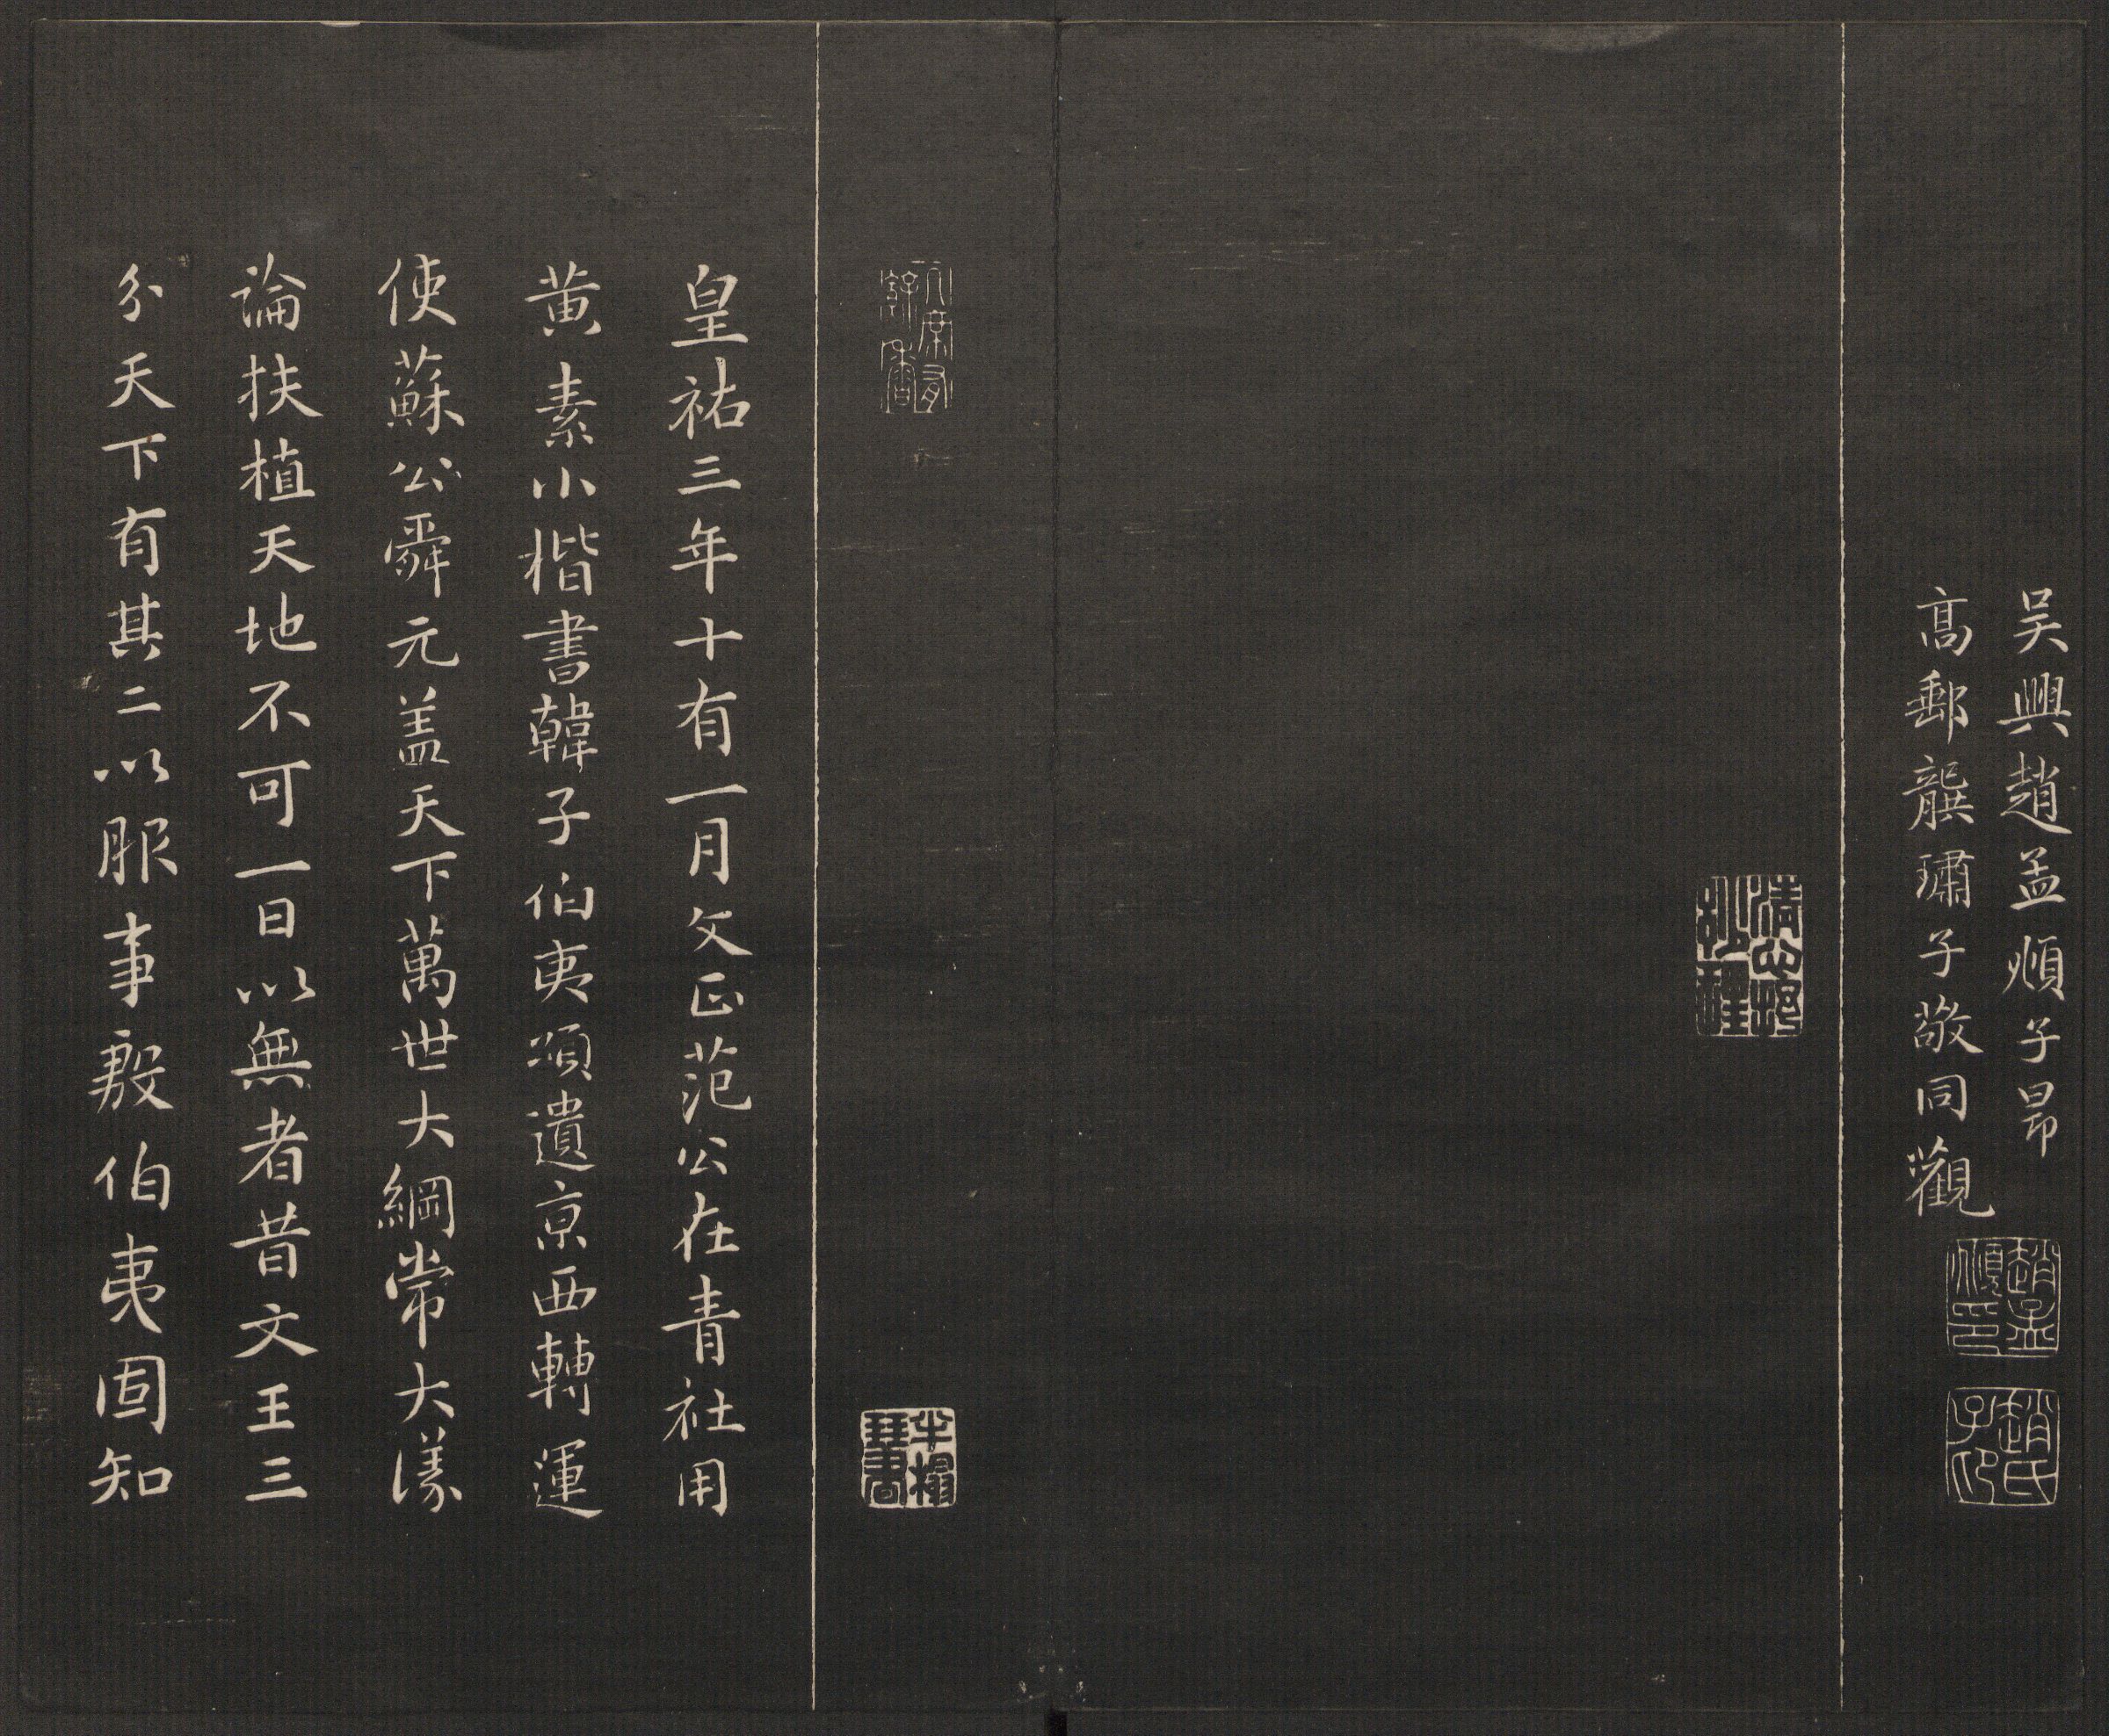 吴興趙孟頫子昂
高郵龔璛子敬同觀
趙孟頫印
趙氏子印
皇祐三年十有一月文正范公在青社用
黄素小楷書韓子伯夷頌遺京西轉運
使蘇公舜元盖天下萬世大綱常大議
論扶植天地不可一日以無者昔文王三
分天下有其二以服事殷伯夷固知